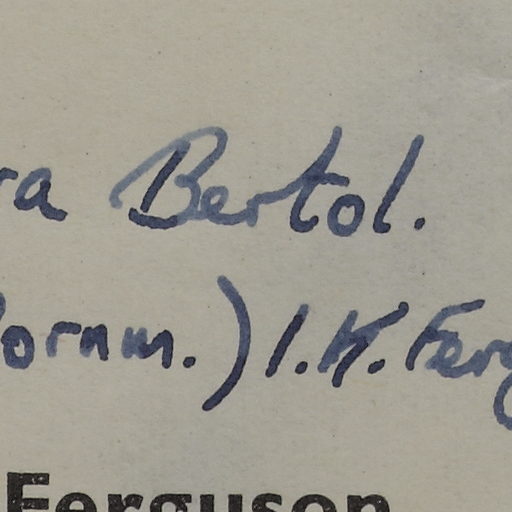 ra Bertol.
Bornm.) I.K. Ferg
Ferguson